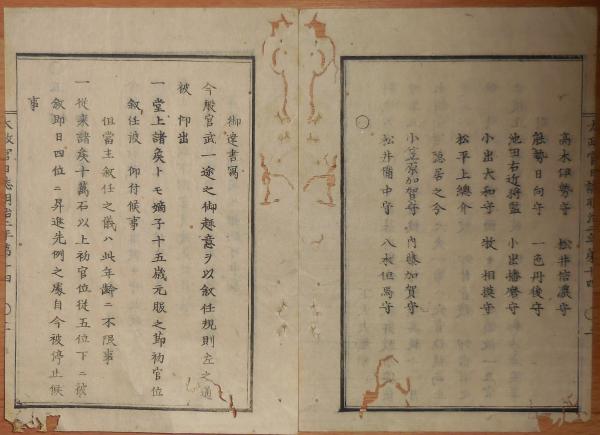 高木伊勢守　松井信濃守
能勢日向守　一色丹後守
池田右近将監　小出播磨守
小出大和守　牧　相摸守
松平上総介
隠居之分
小笠原加賀守　内藤加賀守
松井備中守　八木但馬守
〇
御達書写
今般官武一途之御趣意ヲ以叙任規則左之通
被　仰出
一堂上諸矦トモ嫡子十五歳元服之節初官位
叙任被　仰付候事
但當主叙任之儀ハ此年齢ニ不限事
一従来諸矦十萬石以上初官位従五位下ニ被
叙即日四位ニ昇進先例之處自今被停止候
事
太政官日誌明治二年第十四